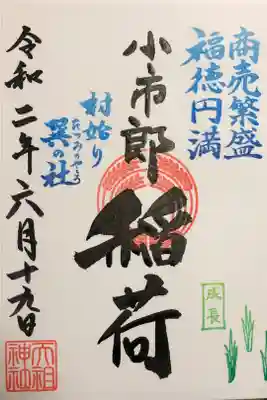 商売繁盛
福徳円満
小市郎稲荷
村始り
たつみのやしろ
巽の社
令和二年六月十九日
成長
大祖
神社